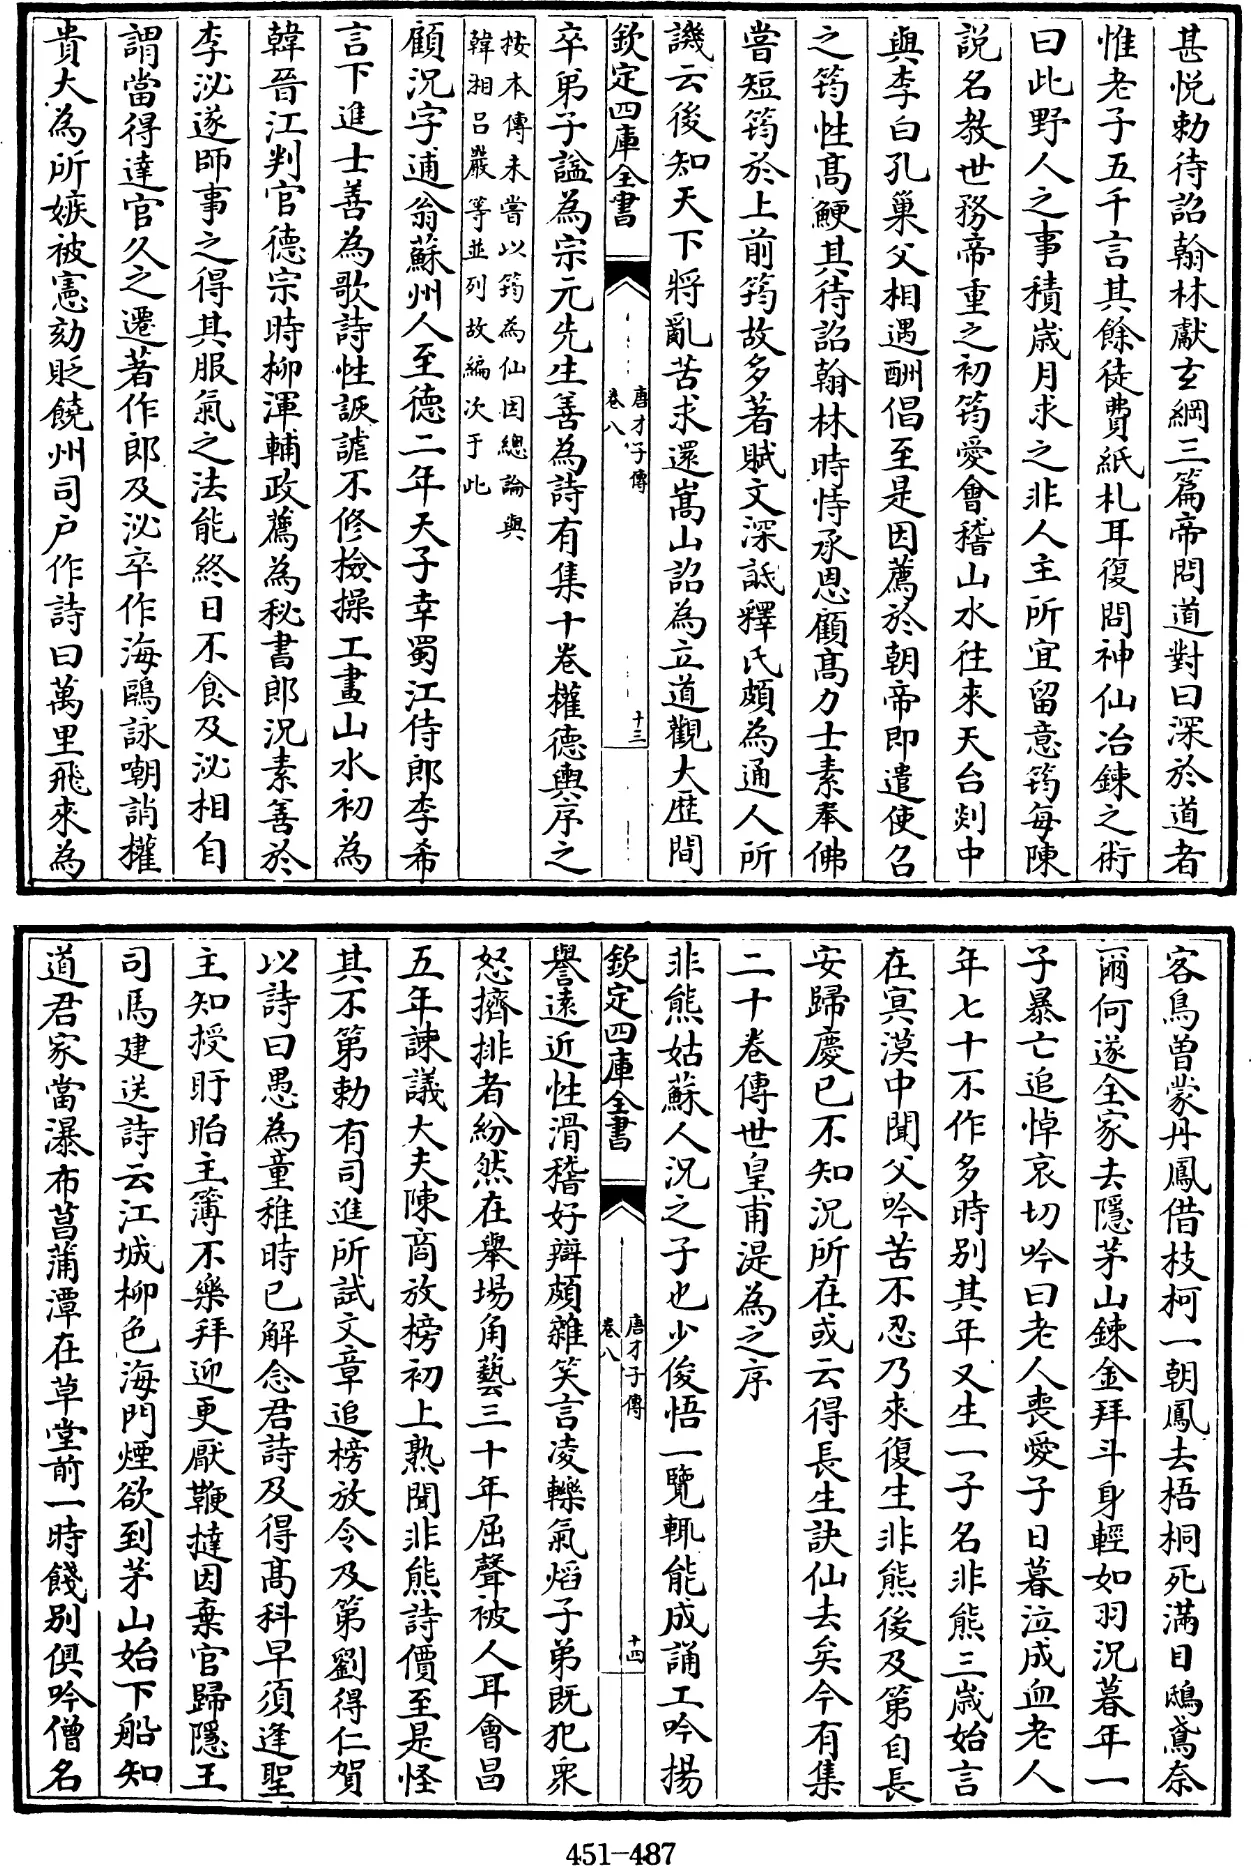 甚悅勅待詔翰林獻𤣥綱三篇帝問道對曰深於道者
惟老子五千言其餘徒費紙札耳復問神仙冶鍊之術
曰此野人之事積嵗月求之非人主所宜留意筠每陳
說名教世務帝重之初筠愛會稽山水往來天台剡中
與李白孔巢父相遇酬倡至是因薦於朝帝即遣使召
之筠性髙鯁其待詔翰林時恃承恩顧髙力士素奉佛
嘗短筠於上前筠故多著賦文深詆釋氏頗為通人所
譏云後知天下將亂苦求還嵩山詔為立道觀大厯間
欽定四庫全書
唐才子傳
卷八
十三
卒弟子諡為宗元先生善為詩有集十卷權德輿序之
按本傳未嘗以筠為仙因總論與
韓湘吕嚴等並列故編次于此
顧況字逋翁蘇州人至德二年天子幸蜀江侍郎李希
言下進士善為歌詩性詼謔不修檢操工畫山水初為
韓晉江判官德宗時柳渾輔政薦為秘書郎況素善於
李泌遂師事之得其服氣之法能終日不食及泌相自
謂當得達官久之遷著作郎及泌卒作海鷗詠嘲誚權
貴大為所嫉被憲劾貶饒州司户作詩曰萬里飛來為
客鳥曽蒙丹鳳借枝柯一朝鳳去梧桐死滿目鴟鳶奈
爾何遂全家去隱茅山鍊金拜斗身輕如羽況暮年一
子暴亡追悼哀切吟曰老人喪愛子日暮泣成血老人
年七十不作多時别其年又生一子名非熊三嵗始言
在冥漠中聞父吟苦不忍乃來復生非熊後及第自長
安歸慶已不知況所在或云得長生訣仙去矣今有集
二十卷傳世皇甫湜為之序
非熊姑蘇人況之子也少俊悟一覽輒能成誦工吟揚
欽定四庫全書
唐才子傳
卷八
十四
譽遠近性滑稽好辯頗雜笑言凌轢氣焰子弟既犯衆
怒擠排者紛然在舉場角藝三十年屈聲被人耳會昌
五年諫議大夫陳商放榜初上熟聞非熊詩價至是怪
其不第勅有司進所試文章追榜放令及第劉得仁賀
以詩曰愚為童稚時已解念君詩及得髙科早須逢聖
主知授盱眙主簿不樂拜迎更厭鞭撻因棄官歸隱王
司馬建送詩云江城柳色海門煙欲到茅山始下船知
道君家當瀑布菖蒲潭在草堂前一時餞别俱吟僧名
451-487